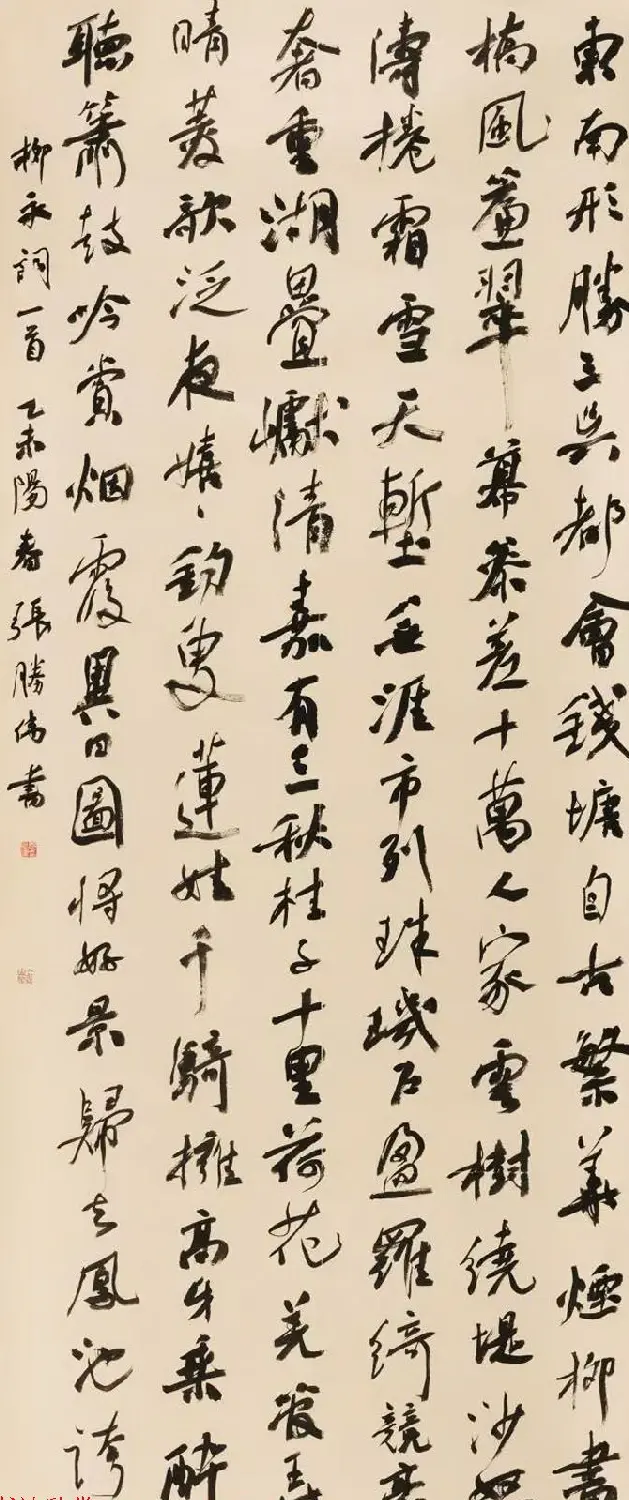 東南形勝三吳都會錢塘自古繁華煙柳畫
橋風簾翠幕參差十萬人家雲樹繞堤沙怒
濤捲霜雪天塹無涯市列珠璣戶盈羅綺競豪
奢重湖疊巘清嘉有三秋桂子十里荷花羌管弄
晴菱歌泛夜嬉、釣叟蓮娃千騎擁高牙乘醉
聽簫鼓吟賞烟霞異日圖將好景歸去鳳池誇
柳永詞一首乙未陽春張勝偉書